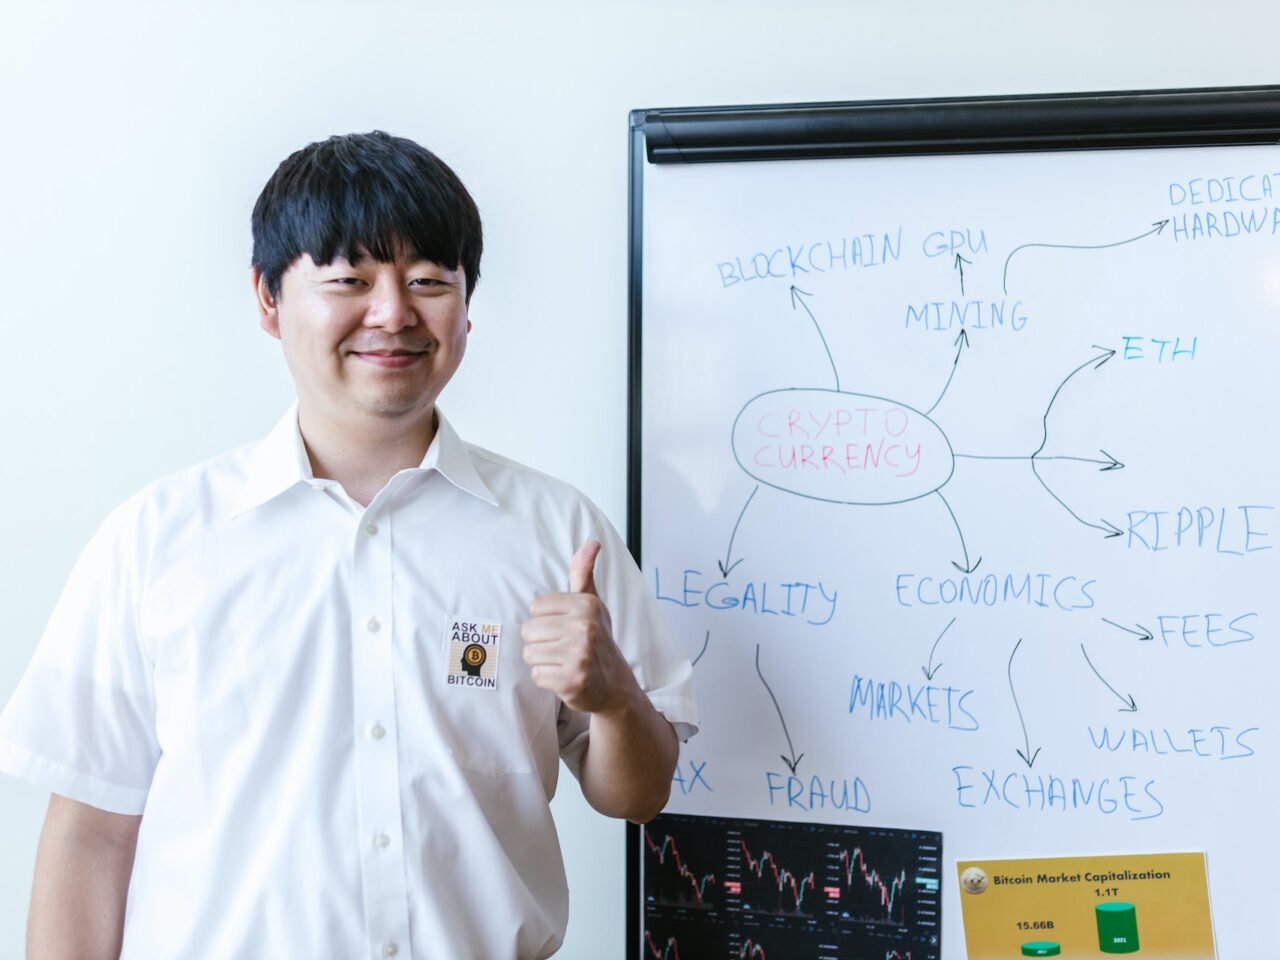 DEDICAT
HARDWA
BLOCKCHAIN
GPU
MINING
ETH
CRYPTO
CURRENCY
RIPPLE
LEGALITY
ECONOMICS
FEES
MARKETS
WALLETS
AX
FRAUD
EXCHANGES
ASK ME
ABOUT
BITCOIN
Bitcoin Market Capitalization
1.1T
15.66B
2021
2017